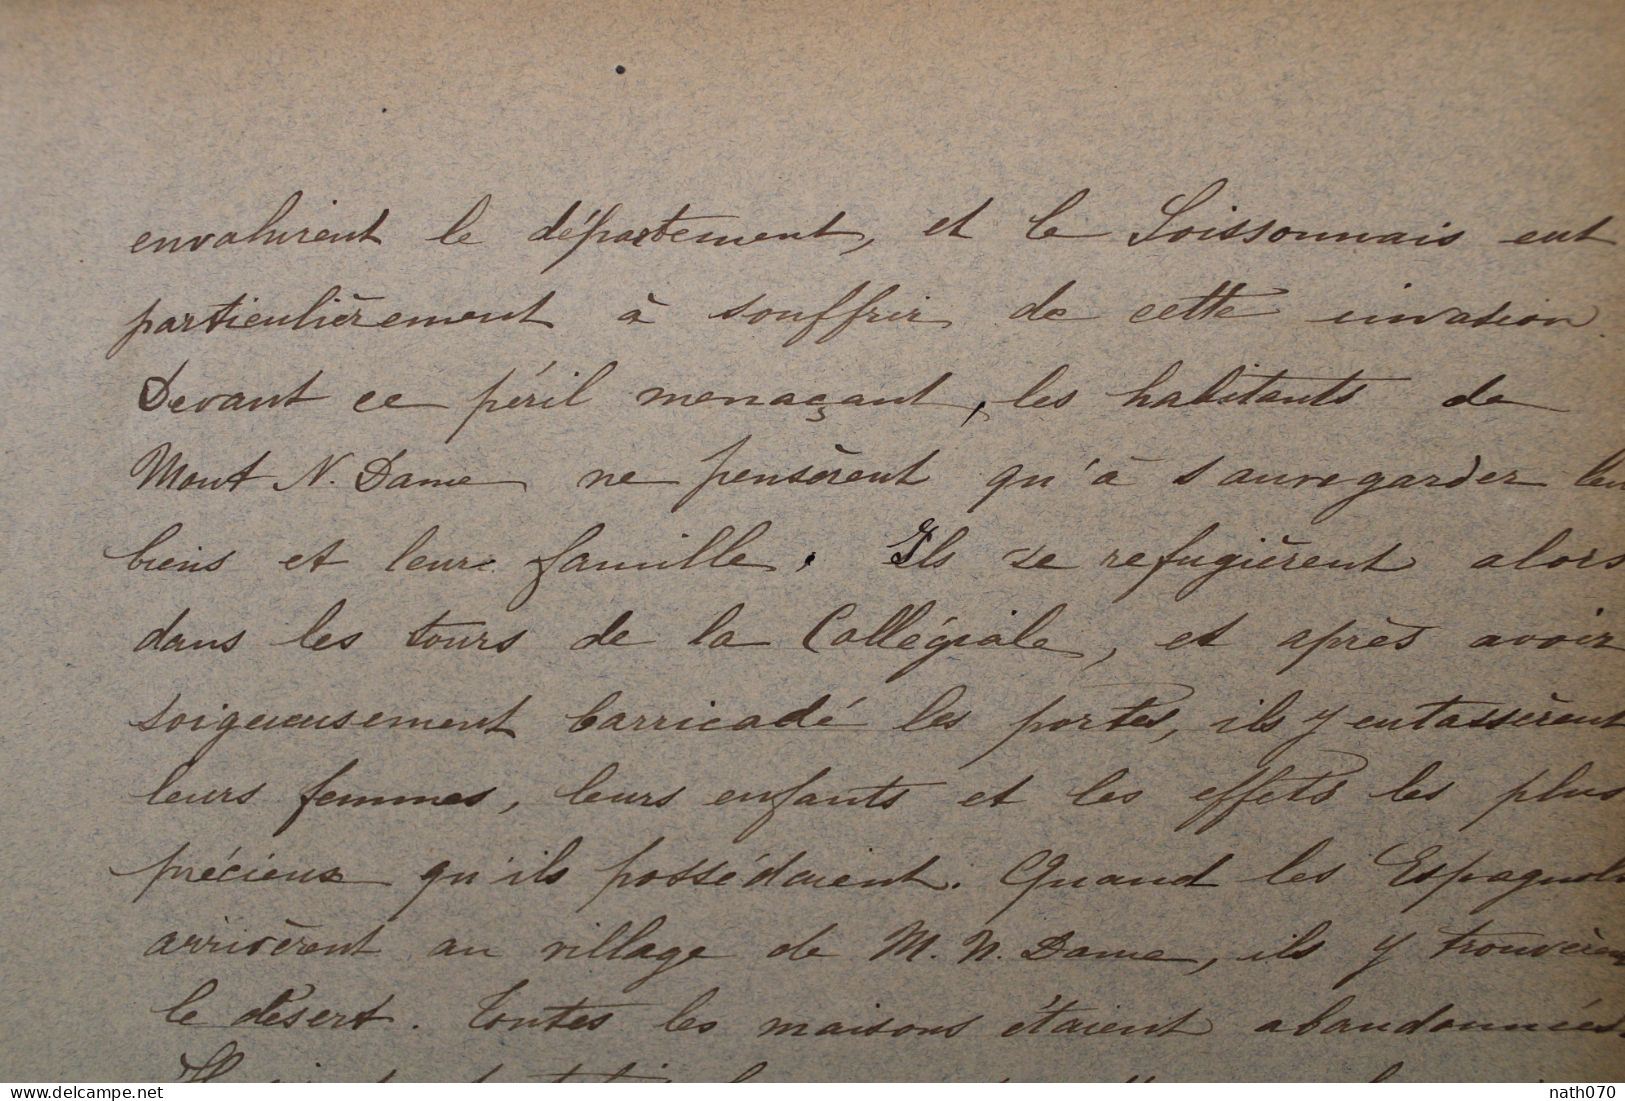 envahirent le département, et le Soissonnais eut
particulièrement à souffrir de cette invasion
Devant ce péril menaçant, les habitants de
Mont N. Dame ne pensèrent qu'à sauvegarder leu
biens et leur famille. Ils se refugièrent alors
dans les tours de la Collégiale, et après avoir
soigneusement barricadé les portes, ils y entassèrent
leurs femmes, leurs enfants et les effets les plus
précieux qu'ils possédaient. Quand les Espagnols
arrivèrent au village de M. N. Dame, ils y trouvèren
le désert. Toutes les maisons étaient abandonnées.
delcampe.net
nath070